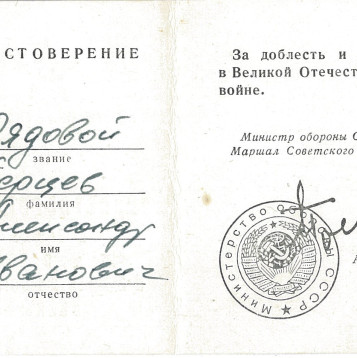 СТОВЕРЕНИЕ
рядовой
звание
ерцев
фамилия
лександр
имя
Иванович
отчество
За доблесть и
в Великой Отечест
войне.
Министр обороны С
Маршал Советского
Министерство Обороны СССР
А